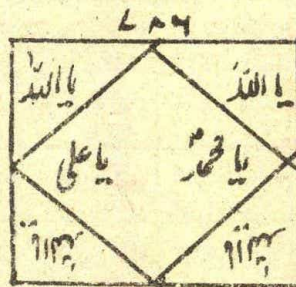 ۷۸۶
یا اللہ یا اللہ
یا محمدؐ یا علی